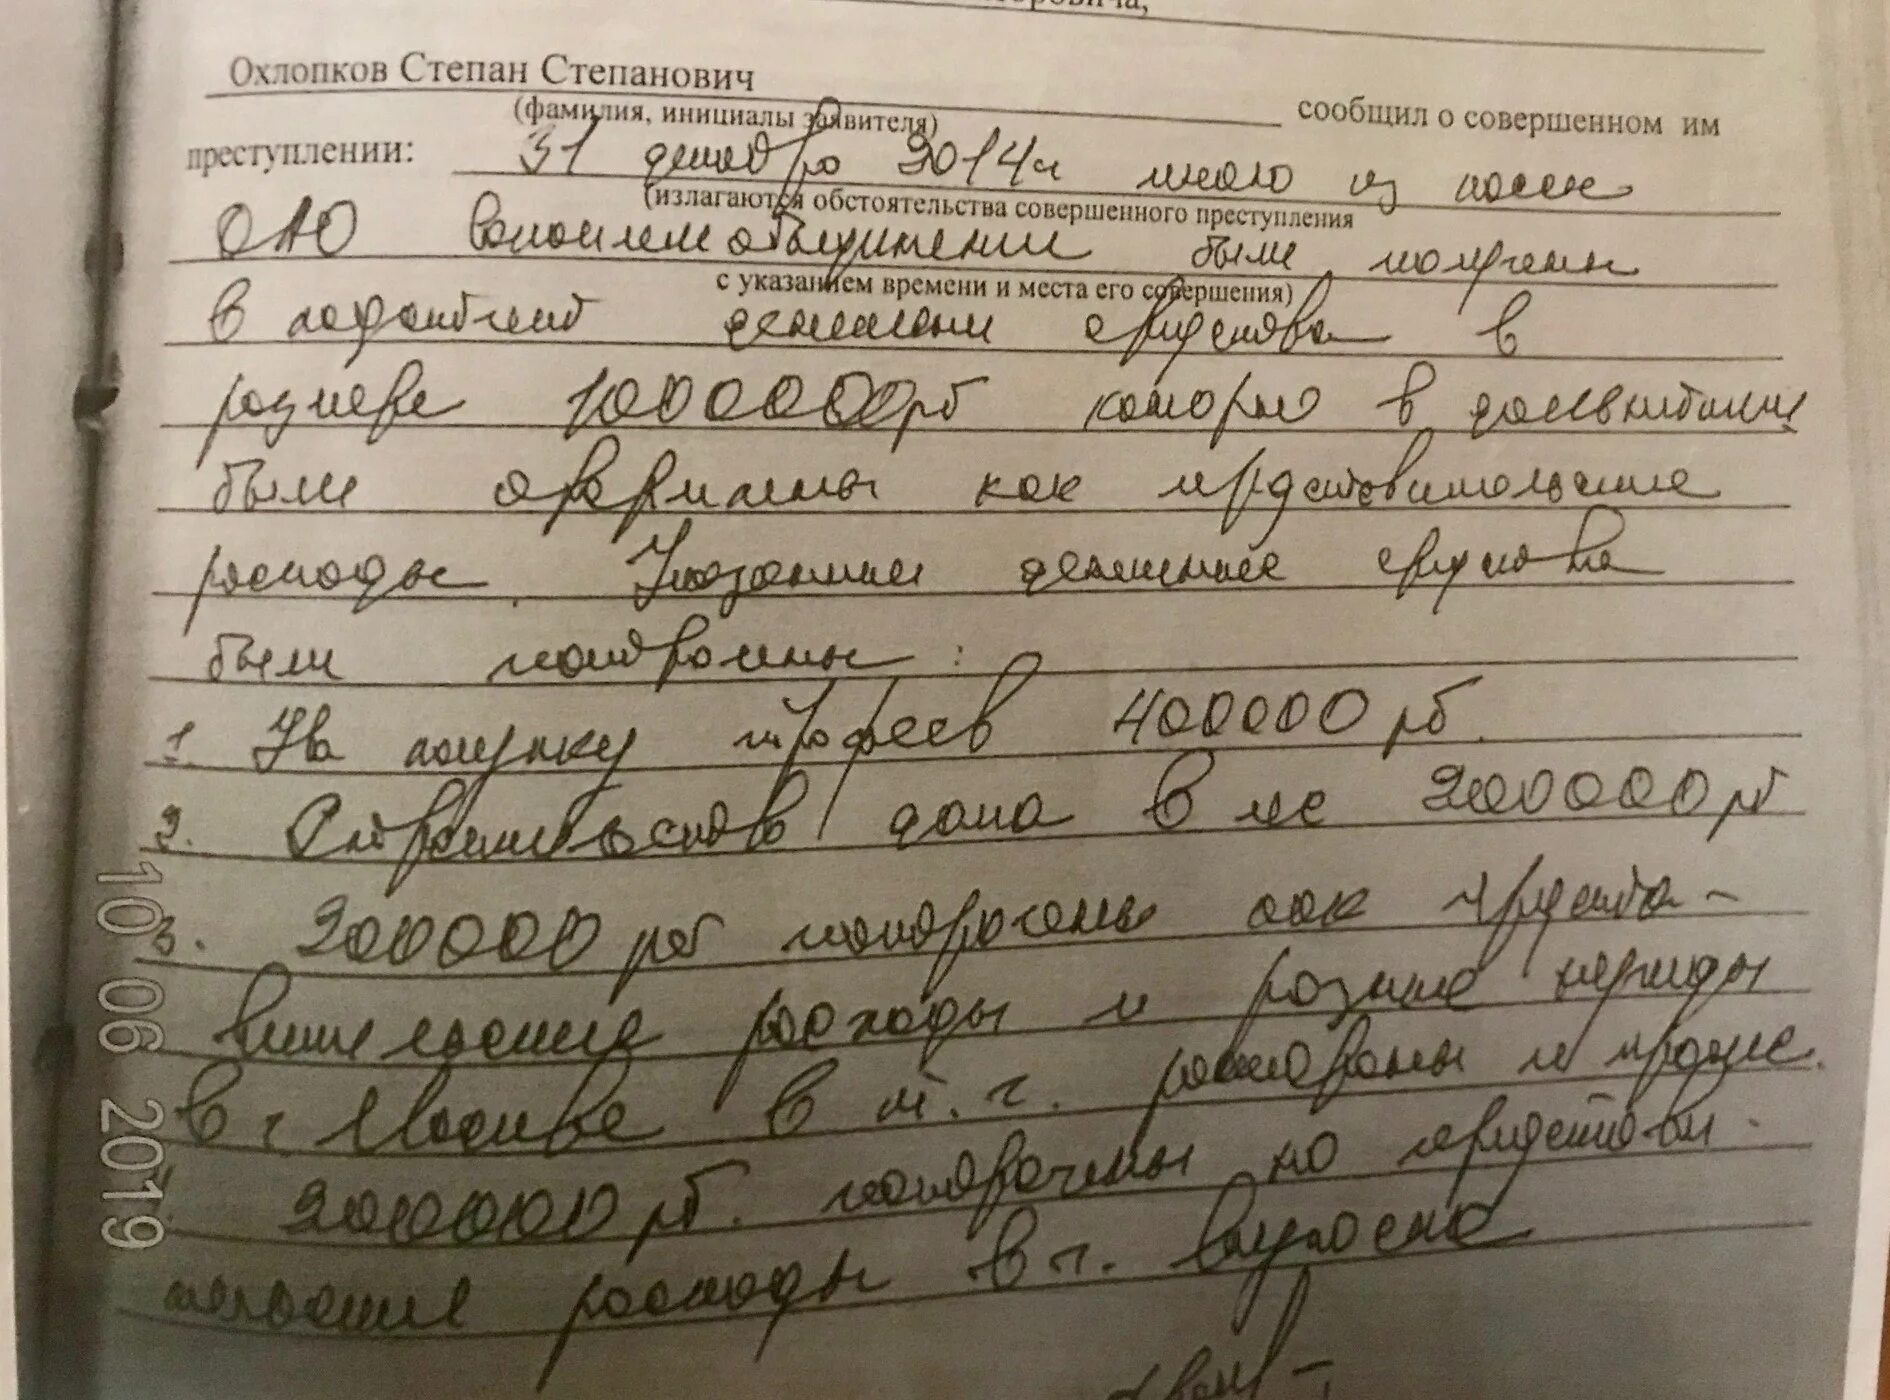 Охлопков Степан Степанович
(фамилия, инициалы заявителя)
сообщил о совершенном им
преступлении: 31 декабря 2014г мною из кассы
(излагаются обстоятельства совершенного преступления
ОАО были получены
с указанием времени и места его совершения)
в подотчет денежные средства в
размере 1000000рб которые в дальнейшем
были оформлены как представительские
расходы. Указанные денежные средства
были потрачены:
1. На покупку трофеев 400000 рб.
2. Строительство дома в лес 200000 рб
3. 200000 рб потрачены как предста-
вительские расходы в разные периоды
в г Москве в т.ч. рестораны и прочие.
200000 рб. потрачены на представи-
тельские расходы в г.
10 06 2019